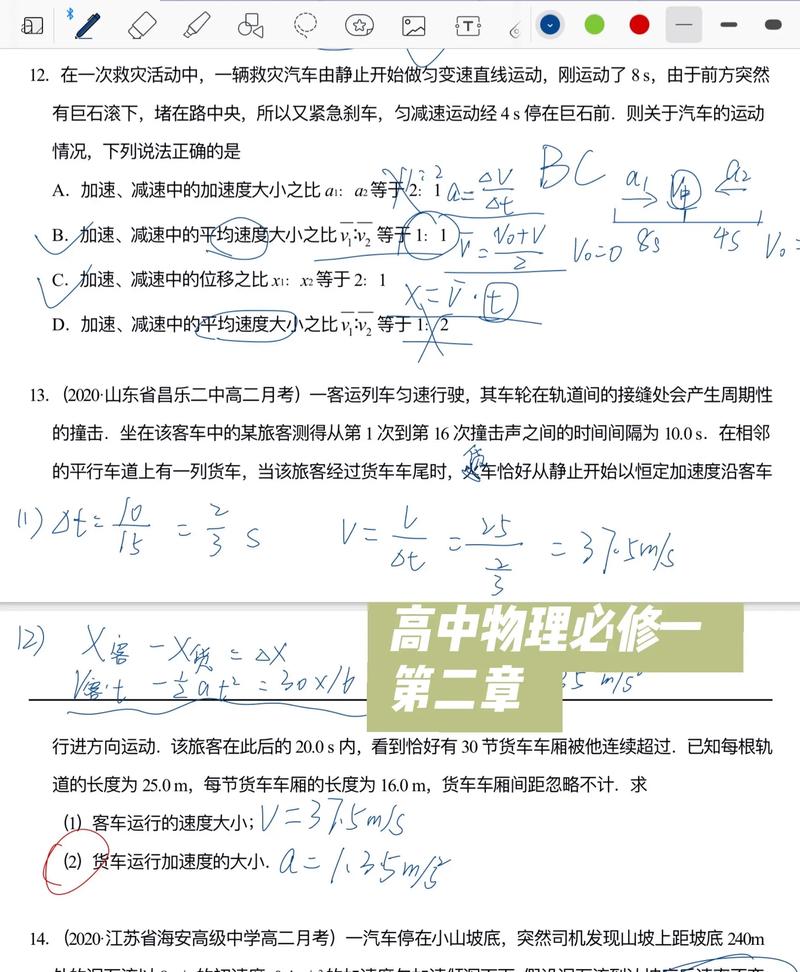 12. 在一次救灾活动中，一辆救灾汽车由静止开始做匀变速直线运动，刚运动了 8 s，由于前方突然
有巨石滚下，堵在路中央，所以又紧急刹车，匀减速运动经 4 s 停在巨石前．则关于汽车的运动
情况，下列说法正确的是
BC
A．加速、减速中的加速度大小之比 a₁：a₂ 等于 2：1
1:2
a=ΔV/Δt
a₁
a₂
B．加速、减速中的平均速度大小之比 v̄₁:v̄₂ 等于 1：1
v̄=(V₀+V)/2
V₀=0
8s
4s
V₀=
C．加速、减速中的位移之比 x₁：x₂ 等于 2：1
X=V̄·t
D．加速、减速中的平均速度大小之比 v̄₁:v̄₂ 等于 1：2
13.（2020·山东省昌乐二中高二月考）一客运列车匀速行驶，其车轮在轨道间的接缝处会产生周期性
的撞击．坐在该客车中的某旅客测得从第 1 次到第 16 次撞击声之间的时间间隔为 10.0 s．在相邻
的平行车道上有一列货车，当该旅客经过货车车尾时，货车恰好从静止开始以恒定加速度沿客车
(1) Δt=10/15=2/3 s
V=L/Δt=25/(2/3)=37.5m/s
(2) X客-X货=ΔX
V客·t-1/2at²=30×16
35 m/s²
高中物理必修一
第二章
行进方向运动．该旅客在此后的 20.0 s 内，看到恰好有 30 节货车车厢被他连续超过．已知每根轨
道的长度为 25.0 m，每节货车车厢的长度为 16.0 m，货车车厢间距忽略不计．求
(1) 客车运行的速度大小；V=37.5m/s
(2) 货车运行加速度的大小．a=1.35m/s²
14.（2020·江苏省海安高级中学高二月考）一汽车停在小山坡底，突然司机发现山坡上距坡底 240m